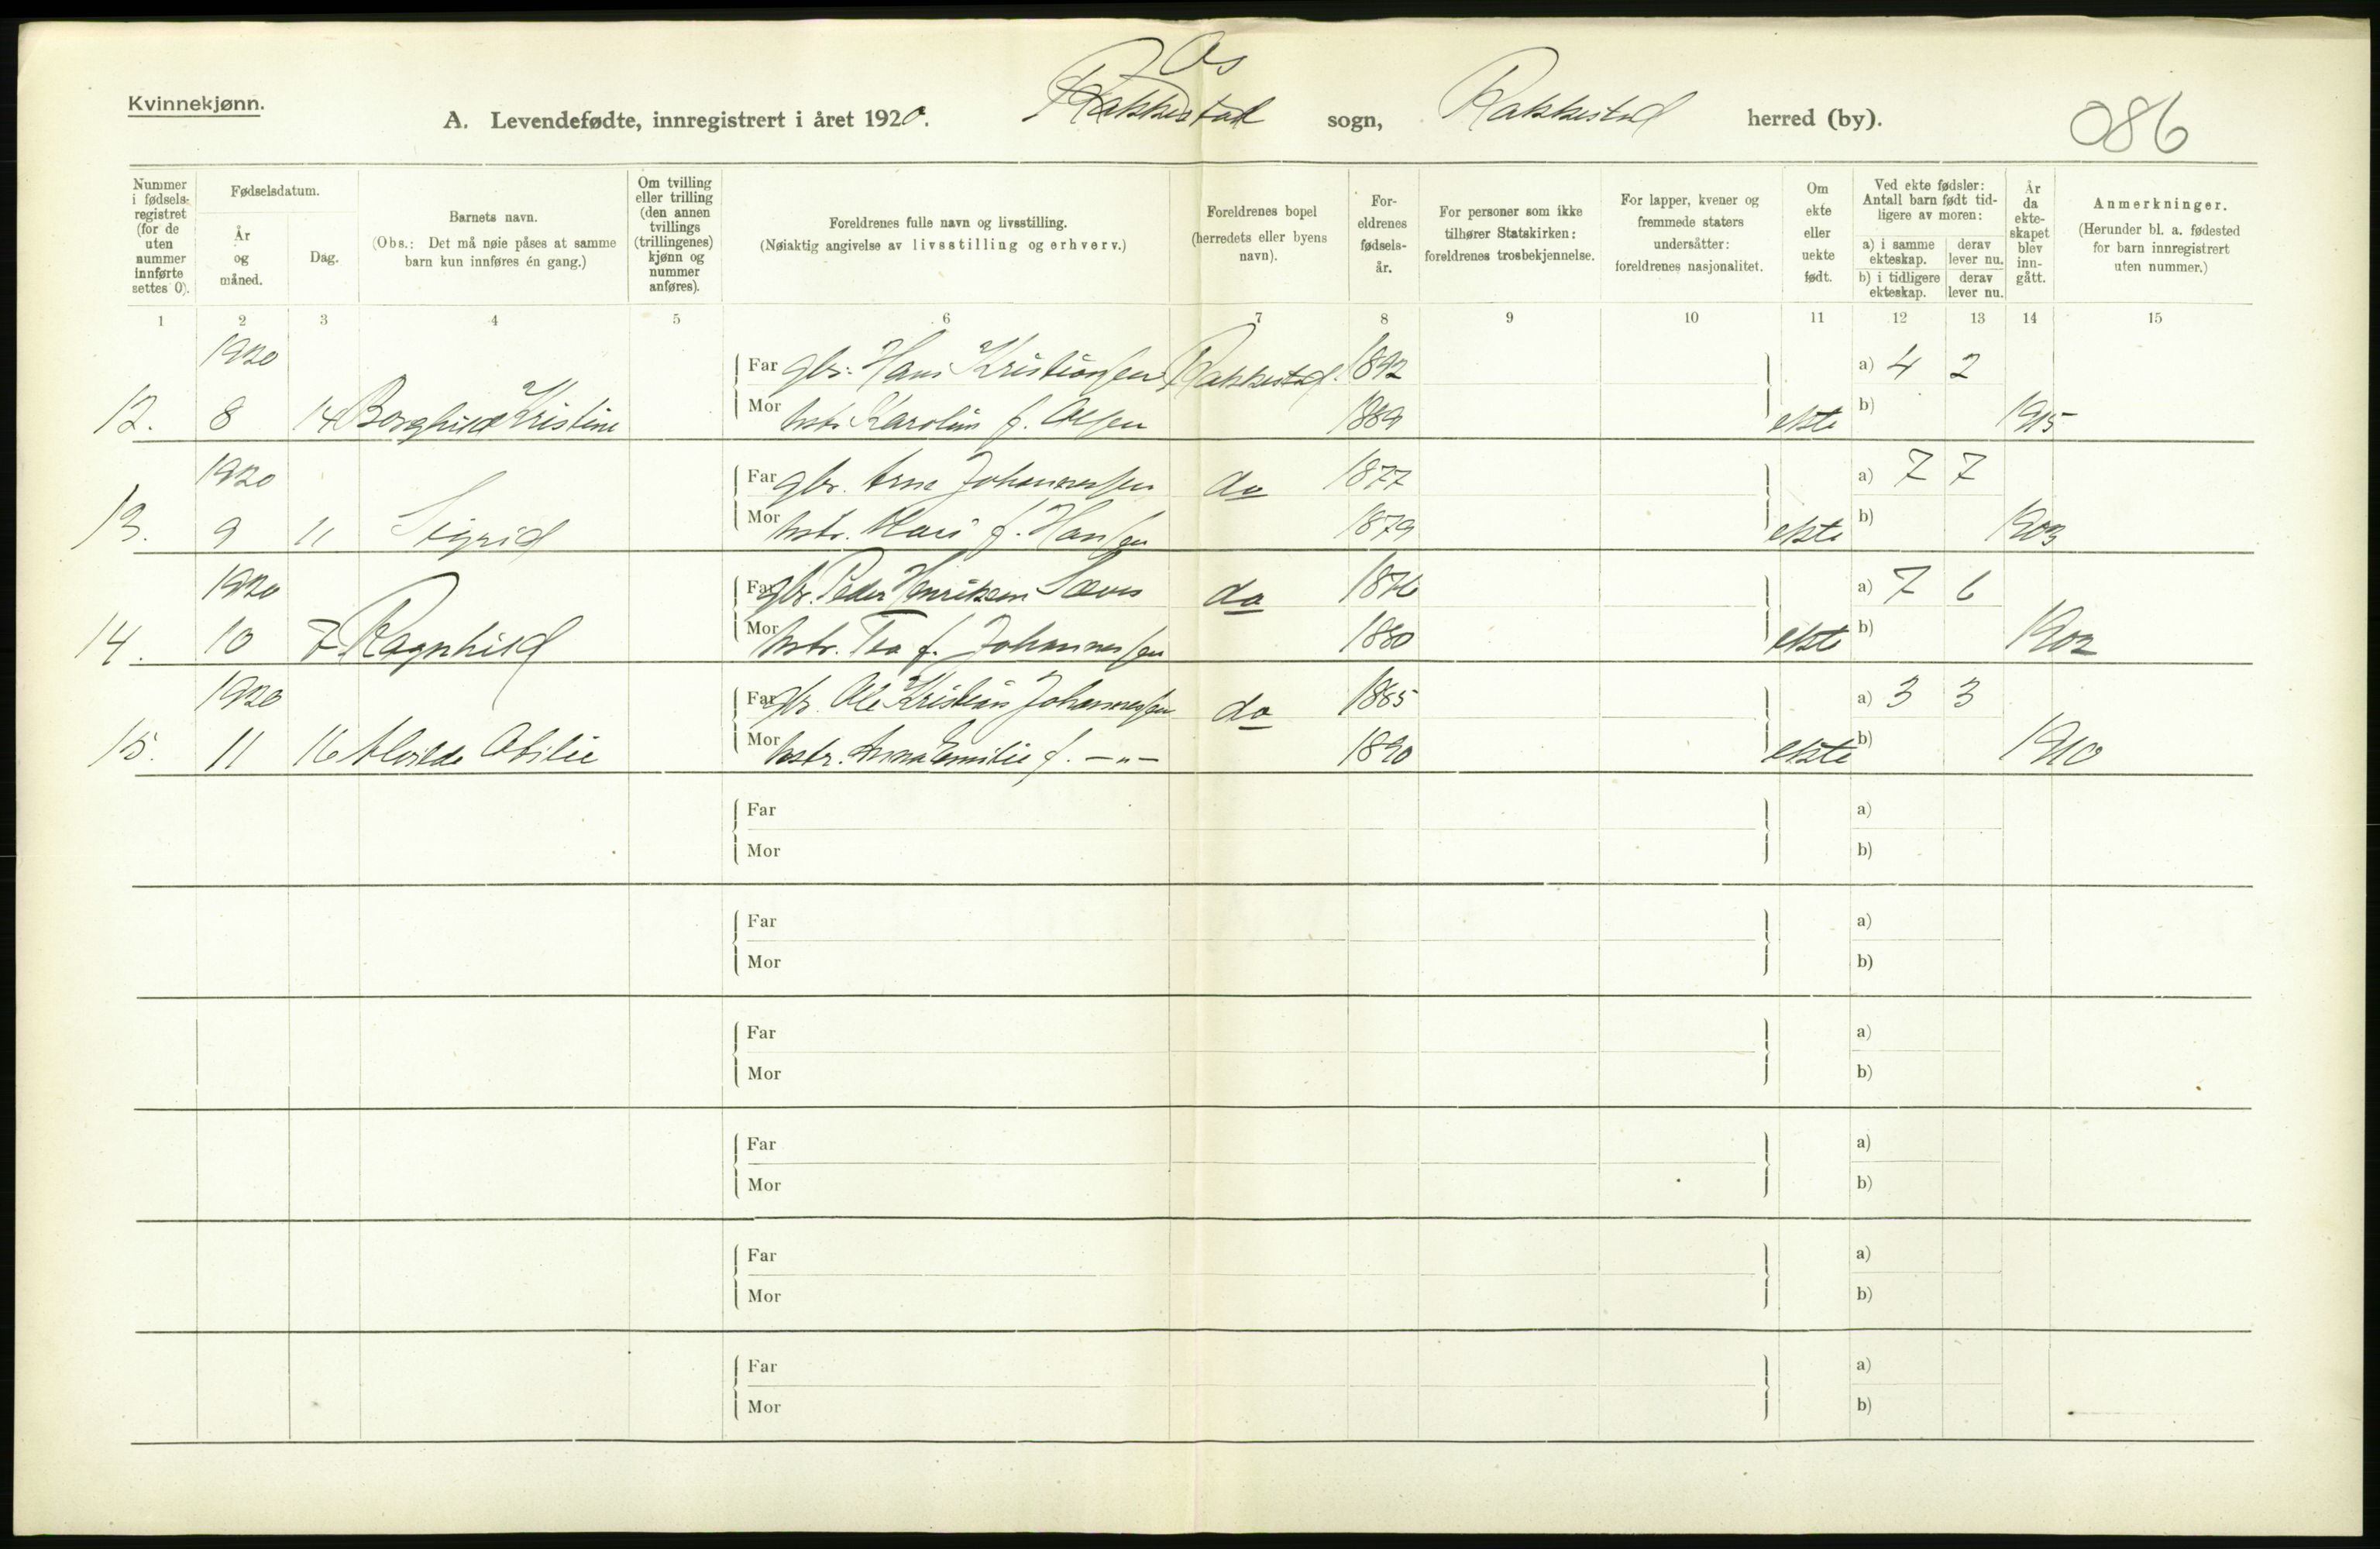 Kvinnekjønn.
A. Levendefødte, innregistrert i året 1920.
Os
Rakkestad sogn, Rakkestad herred (by).
086
Nummer i fødselsregistret (for de uten nummer innførte settes 0).
Fødselsdatum.
År og måned.
Dag.
Barnets navn.
(Obs.: Det må nøie påses at samme barn kun innføres én gang.)
Om tvilling eller trilling (den annen tvillings (trillingenes) kjønn og nummer anføres).
Foreldrenes fulle navn og livsstilling.
(Nøiaktig angivelse av livsstilling og erhverv.)
Foreldrenes bopel (herredets eller byens navn).
Foreldrenes fødselsår.
For personer som ikke tilhører Statskirken: foreldrenes trosbekjennelse.
For lapper, kvener og fremmede staters undersåtter: foreldrenes nasjonalitet.
Om ekte eller uekte født.
Ved ekte fødsler: Antall barn født tidligere av moren:
a) i samme ekteskap.
derav lever nu.
b) i tidligere ekteskap.
derav lever nu.
År da ekteskapet blev inngått.
Anmerkninger.
(Herunder bl. a. fødested for barn innregistrert uten nummer.)
1 2 3 4 5 6 7 8 9 10 11 12 13 14 15
1920 Far gbr. Hans Kristiansen Rakkestad. 1892 a) 4 2
12. 8 14 Borghild Kristine Mor hstr. Karoline f. Olsen 1889 ekte b) 1915
1920 Far gbr. Arne Johannessen do 1877 a) 7 7
13. 9 11 Sigrid Mor hstr. f. Hansen 1879 ekte b) 1903
1920 Far gbr. Peder Henriksen do 1876 a) 7 6
14. 10 7 Ragnhild Mor hstr. Tea f. Johannessen 1880 ekte b) 1902
1920 Far gbr. Ole Kristian Johannessen do 1885 a) 3 3
15. 11 16 Mor hstr. Anna Emilie f. —"— 1890 ekte b) 1910
Far a)
Mor b)
Far a)
Mor b)
Far a)
Mor b)
Far a)
Mor b)
Far a)
Mor b)
Far a)
Mor b)